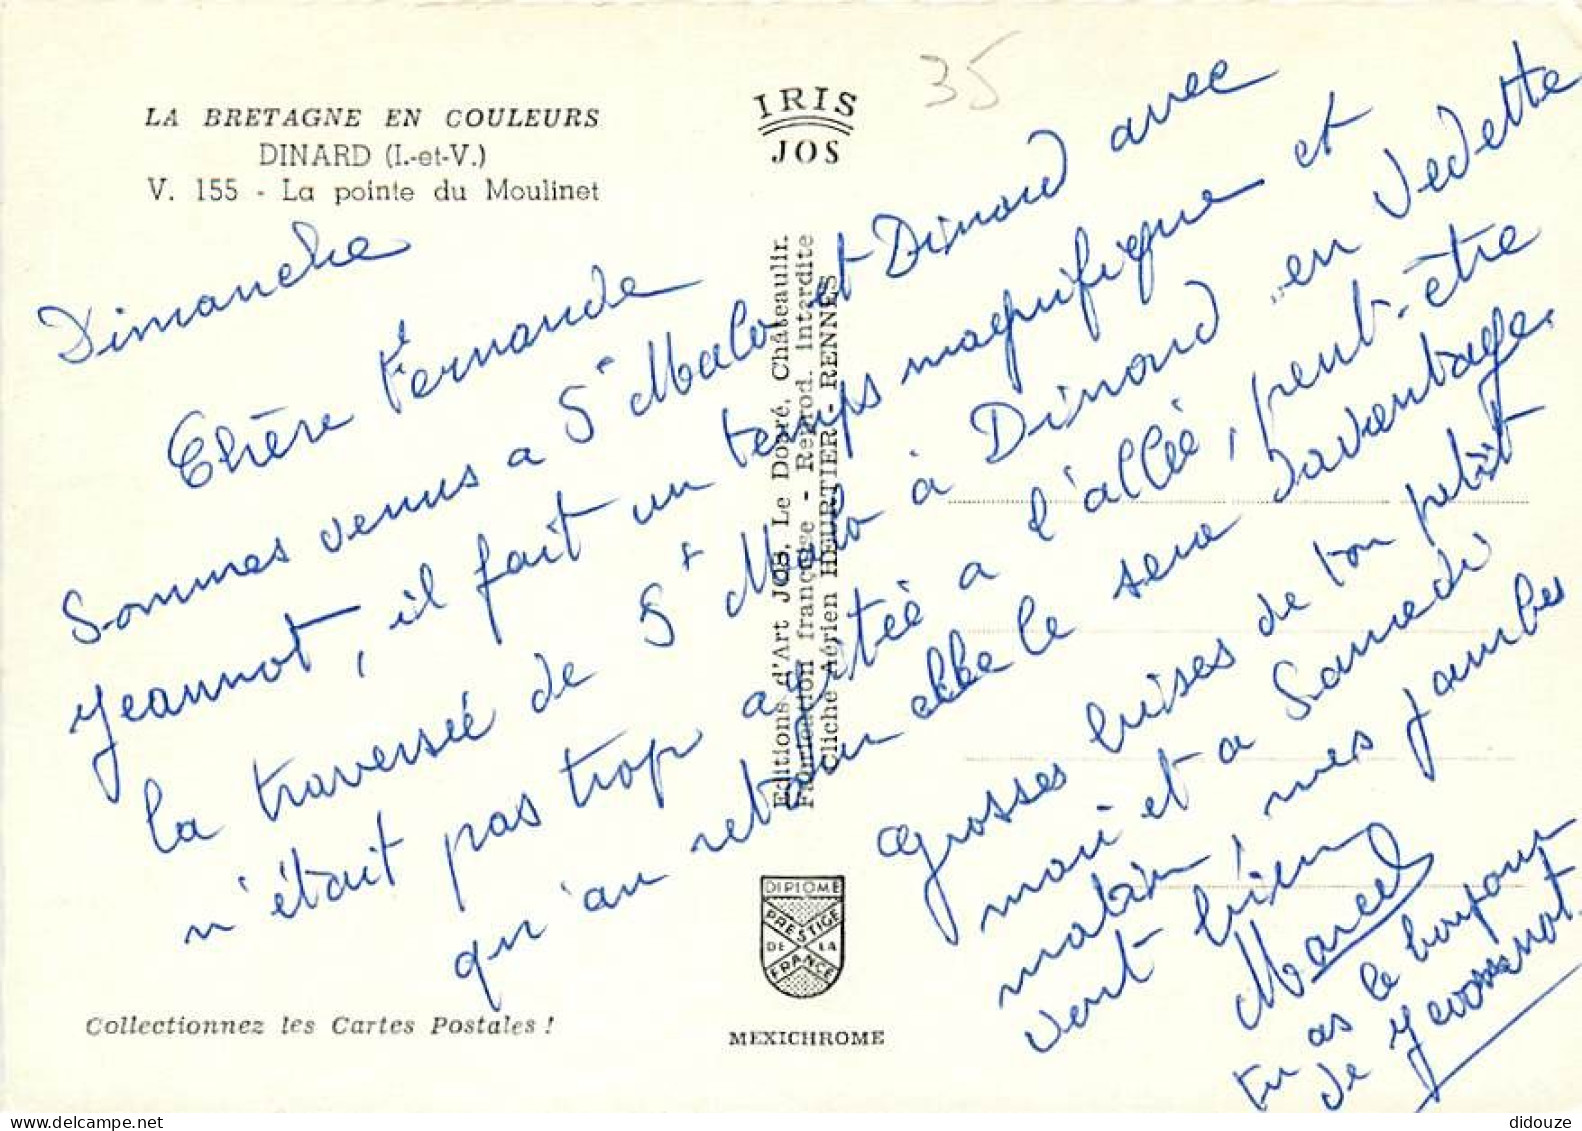 35
LA BRETAGNE EN COULEURS
DINARD (I.-et-V.)
V. 155 - La pointe du Moulinet
IRIS
JOS
Editions d'Art JOS, Le Doaré, Châteaulin.
Fabrication française - Reprod. interdite
Cliché Aérien HEURTIER - RENNES
Dimanche
Chère Fernande
Sommes venus a St Malo et Dinard avec
Jeannot, il fait un temps magnifique et
la traversée de St Malo à Dinard en vedette
n'était pas trop agitée a l'allée, peut-être
qu'au retour elle le sera davantage.
Grosses bises de ton petit
mari et a Samedi
matin, mes jambes
vont bien
Marcel
tu as le bonjour
de Jeannot.
DIPLOME
PRESTIGE
DE LA
FRANCE
Collectionnez les Cartes Postales !
MEXICHROME
didouze